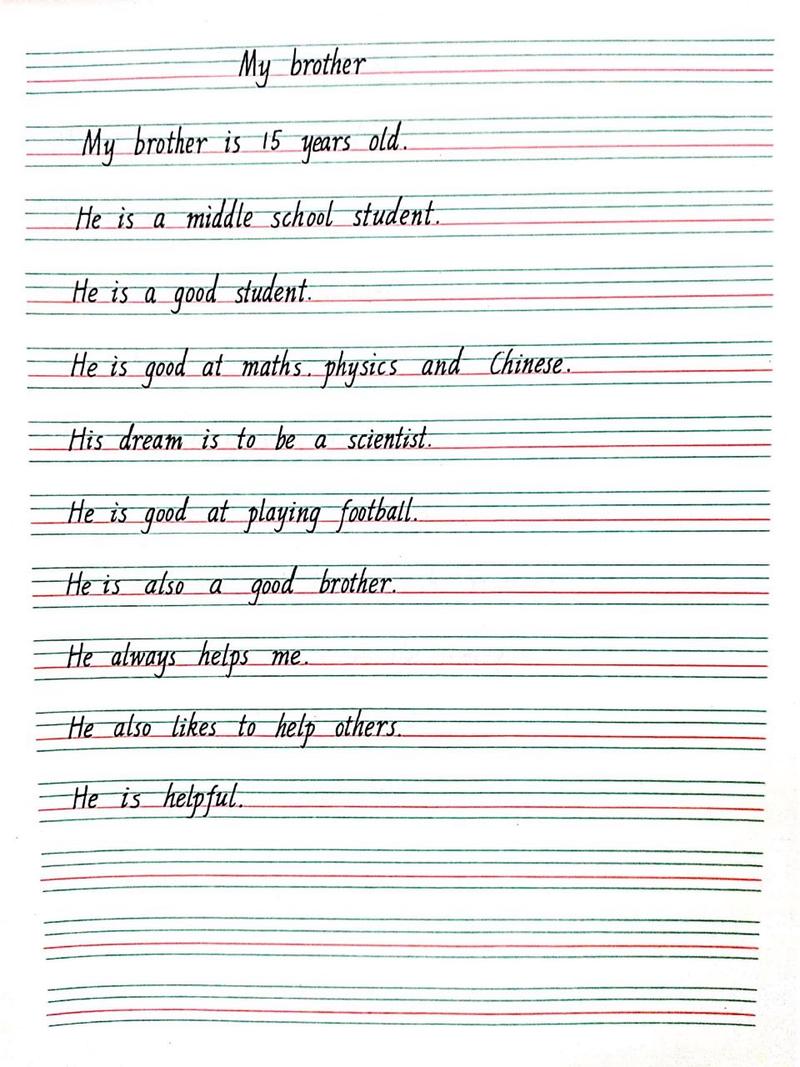 My brother
My brother is 15 years old.
He is a middle school student.
He is a good student.
He is good at maths. physics and Chinese.
His dream is to be a scientist.
He is good at playing football.
He is also a good brother.
He always helps me.
He also likes to help others.
He is helpful.